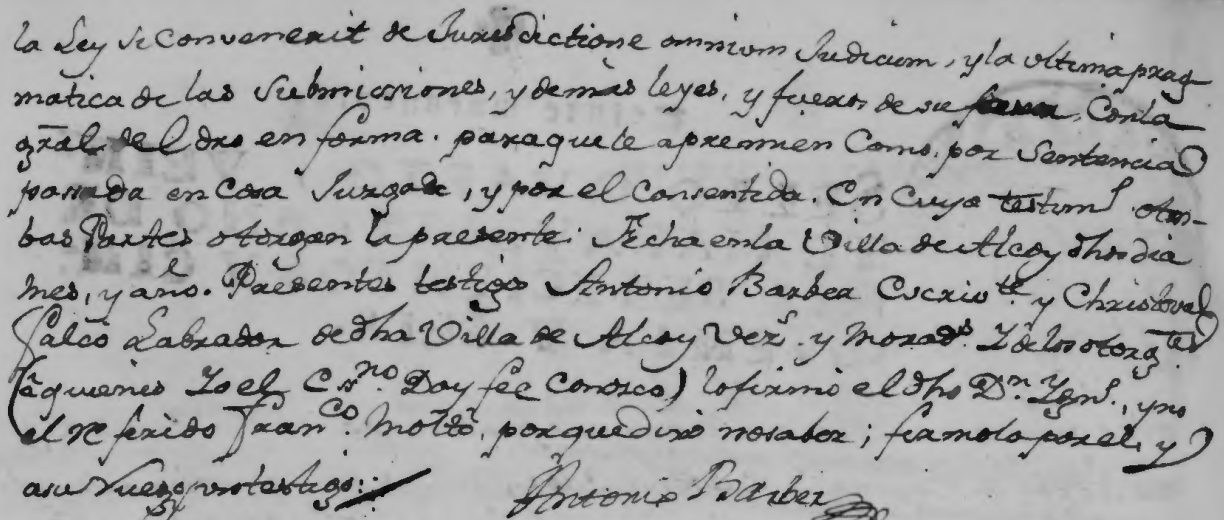 la Ley si Convenerit de Jurisdictione omnium Judicum, y la ultima prag
matica de las Submissiones, y demás leyes, y fueros de su favor. Con la
gral. del dro en forma. para que le apremien Como por Sentencia
passada en Cosa Juzgada, y por el Consentida. En Cuyo testimo. Am-
bas Partes otorgan la presente. Fecha en la Villa de Alcoy dhos dia
mes, y año. Presentes testigos Antonio Barber Escrivte. y Christoval
Falcó Labrador de dha Villa de Alcoy Vezs. y Morads. Y de los otorgtes
(a quienes Yo el Essno Doy fee Conosco) lo firmó el dho Dn. Ygno., y no
el referido Franco. Moltó, porque dixo no saber; firmolo por el, y
a su Ruego un testigo:
Antonio Barber